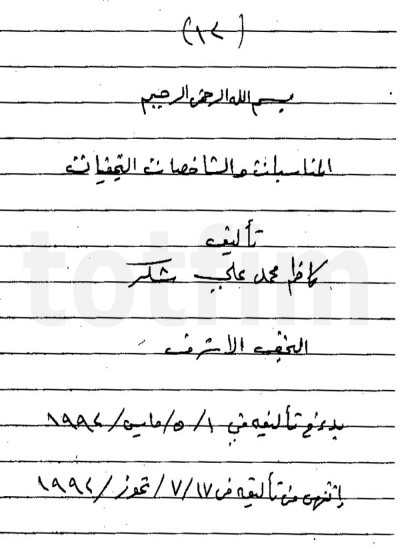 (١٢)
بسم الله الرحمن الرحيم
المناسبات والشاخصات النجفيات
تأليف
كاظم محمد علي شكر
النجف الاشرف
بدء في تأليفه في ١/٥/مايس/١٩٩٢
إنتهى من تأليفه في ١٧/٧/تموز/١٩٩٢
totfim